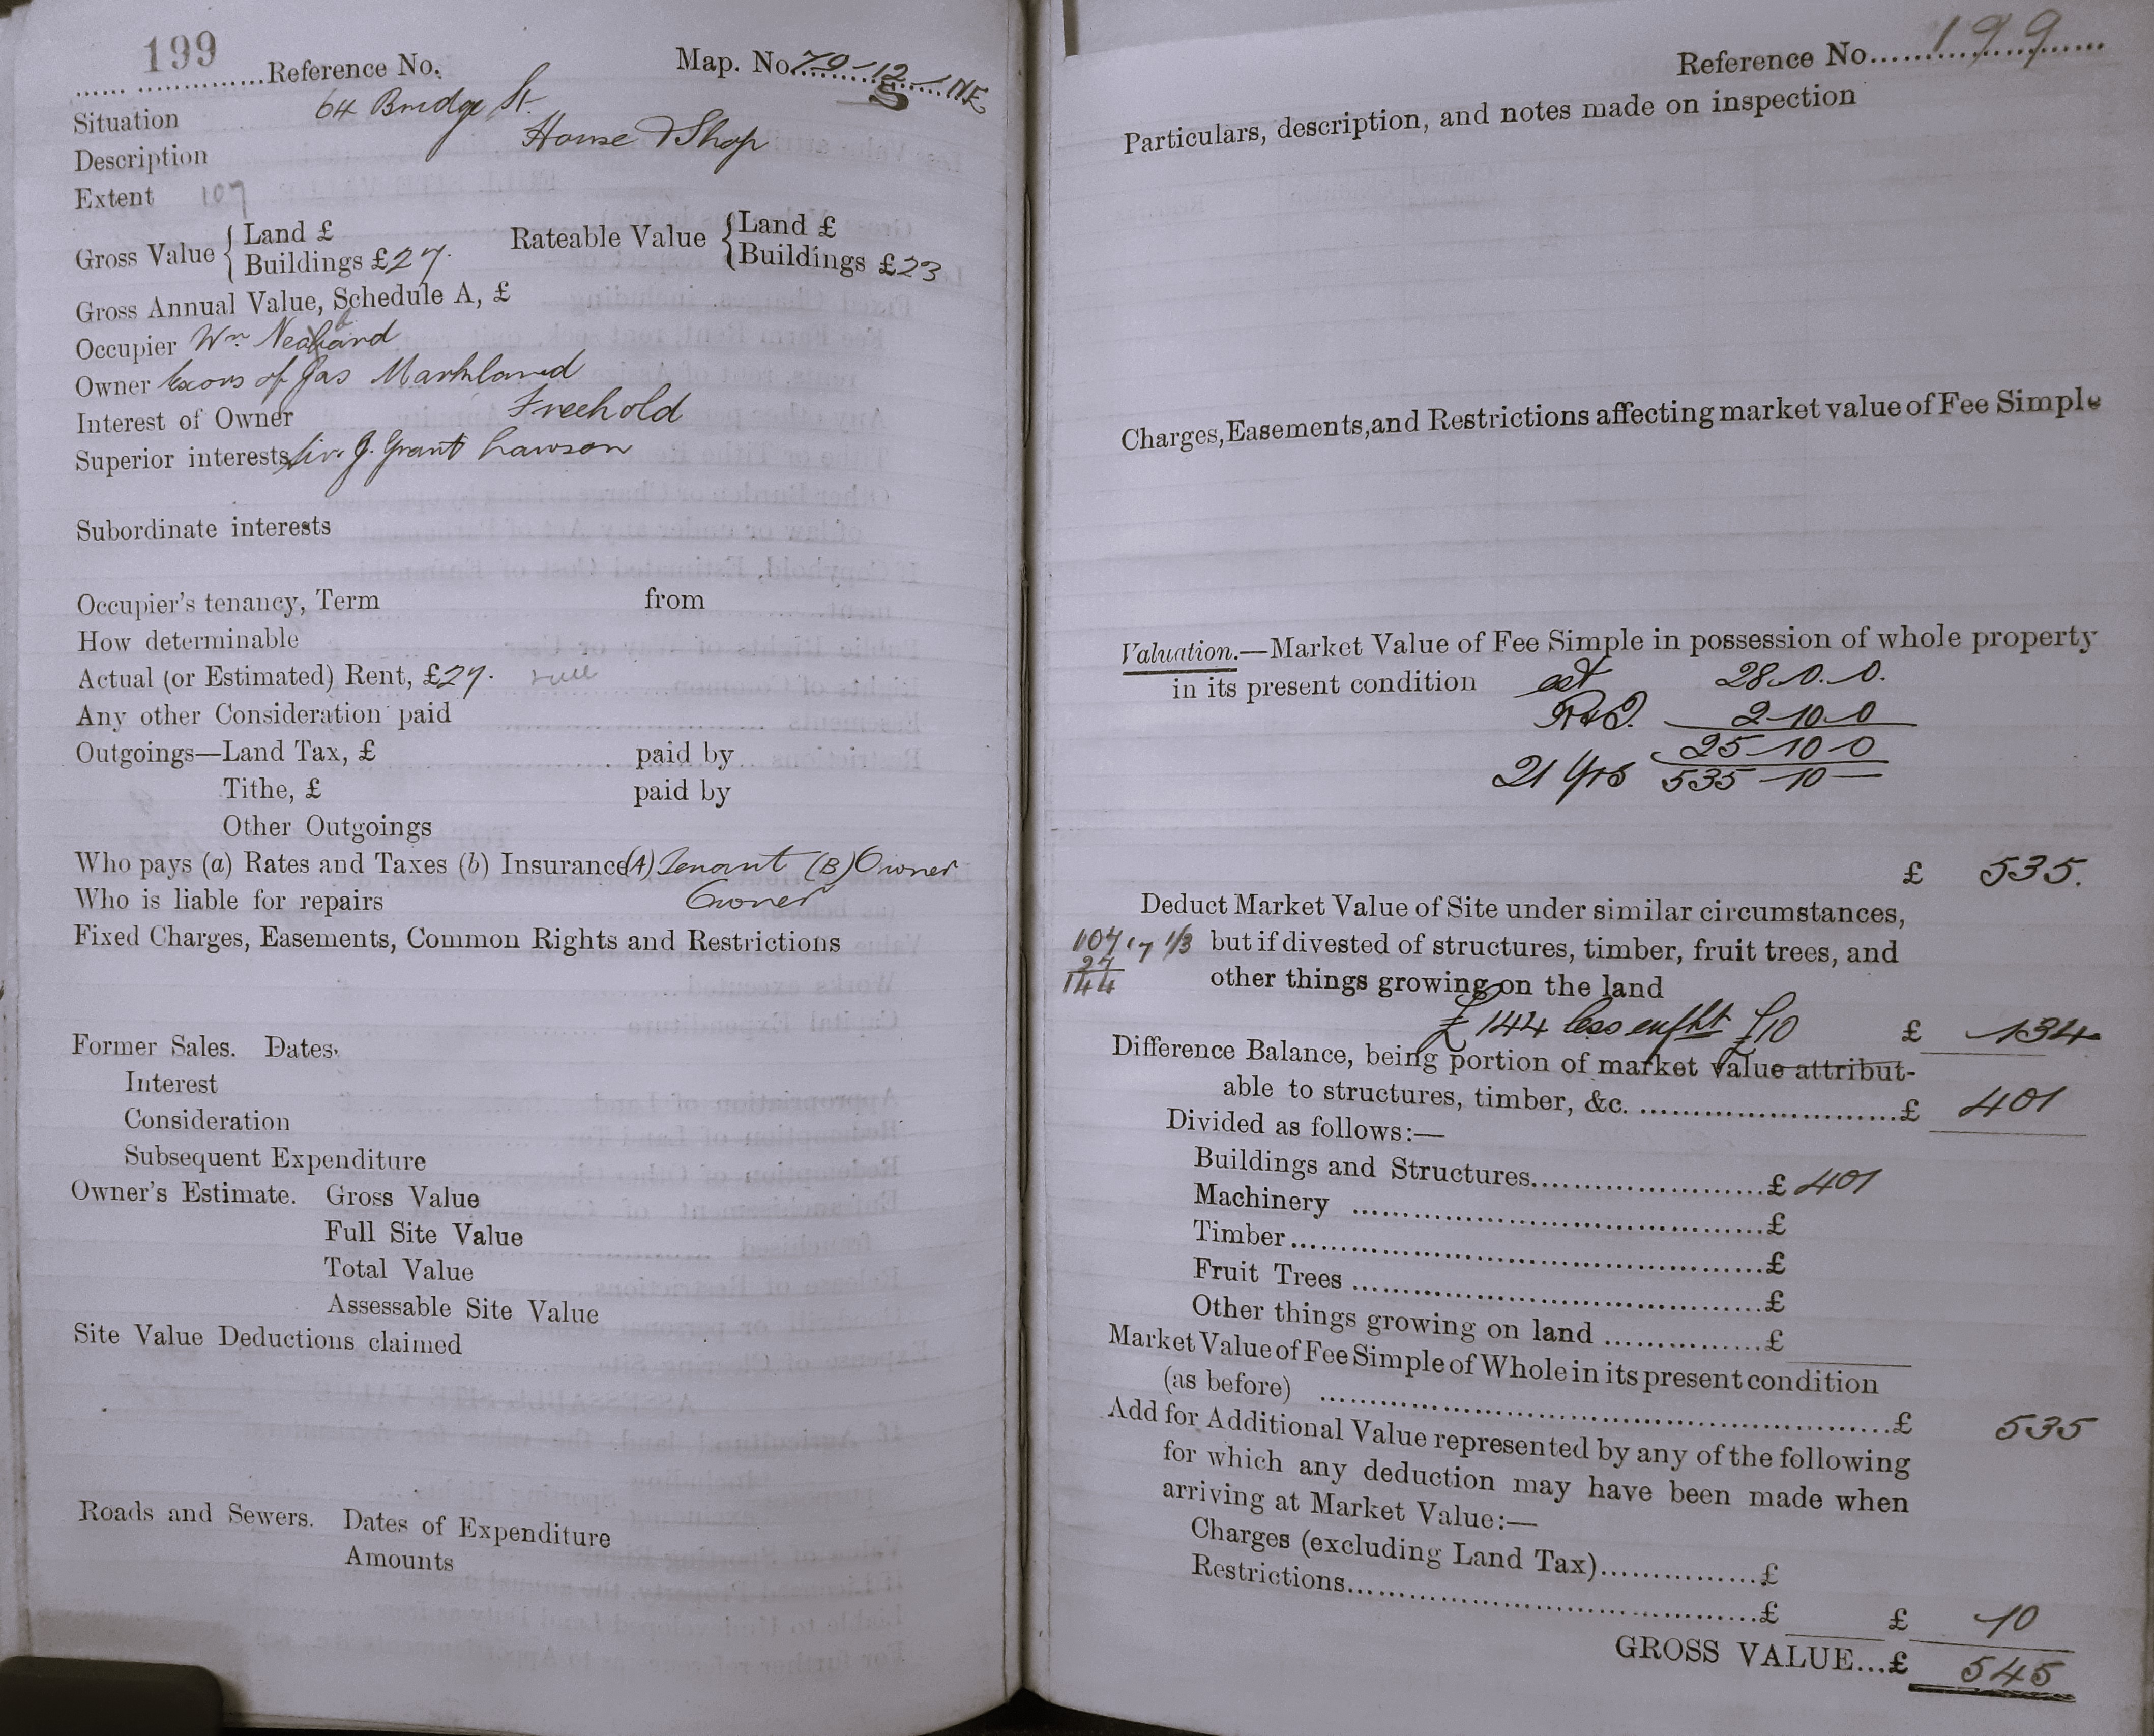 199
...... ..............Reference No. Map. No. 79-12-NE
S
Situation 64 Bridge St.
Description House & Shop
Extent 107
Gross Value { Land £ Rateable Value { Land £
Buildings £27. Buildings £23
Gross Annual Value, Schedule A, £
Occupier Wm
Owner Exors of Jas Markland
Interest of Owner Freehold
Superior interests Sir J. Grant Lawson
Subordinate interests
Occupier's tenancy, Term from
How determinable
Actual (or Estimated) Rent, £27.
Any other Consideration paid
Outgoings—Land Tax, £ paid by
Tithe, £ paid by
Other Outgoings
Who pays (a) Rates and Taxes (b) Insurance (A) Tenant (B) Owner
Who is liable for repairs Owner
Fixed Charges, Easements, Common Rights and Restrictions
Former Sales. Dates.
Interest
Consideration
Subsequent Expenditure
Owner's Estimate. Gross Value
Full Site Value
Total Value
Assessable Site Value
Site Value Deductions claimed
Roads and Sewers. Dates of Expenditure
Amounts
Reference No. 199
Particulars, description, and notes made on inspection
Charges, Easements, and Restrictions affecting market value of Fee Simple
Valuation.—Market Value of Fee Simple in possession of whole property
in its present condition est 28.0.0.
2-10-0
25-10-0
21 Yrs 535-10-
£ 535.
Deduct Market Value of Site under similar circumstances,
107 1/3 but if divested of structures, timber, fruit trees, and
144 other things growing on the land
£144 less £10 £ 134
Difference Balance, being portion of market value attribut-
able to structures, timber, &c. ........................£ 401
Divided as follows:—
Buildings and Structures......................£ 401
Machinery ......................................£
Timber............................................£
Fruit Trees ......................................£
Other things growing on land ...............£
Market Value of Fee Simple of Whole in its present condition
(as before) ........................................................£ 535
Add for Additional Value represented by any of the following
for which any deduction may have been made when
arriving at Market Value:—
Charges (excluding Land Tax)...............£
Restrictions.......................................£ £ 10
GROSS VALUE...£ 545